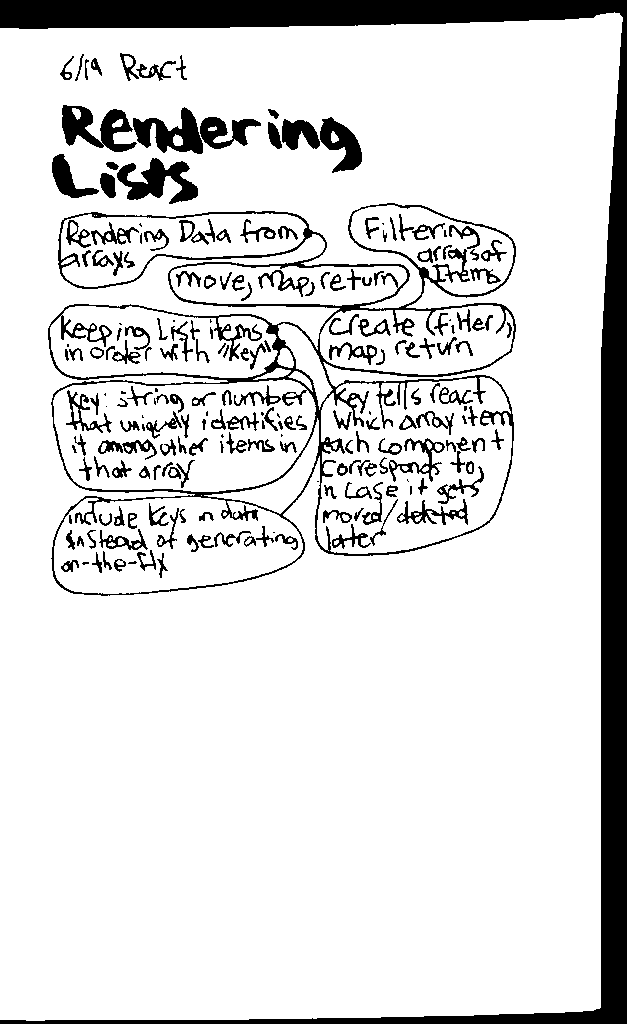 6/19 React
Rendering
Lists
Rendering Data from
arrays
Filtering
arrays of
Items
move, map, return
Keeping List items
in order with "Key"
Create (filter),
map, return
Key: string or number
that uniquely identifies
it among other items in
that array
Key tells react
which array item
each component
corresponds to,
in case it gets
moved/deleted
later
include Keys in data
instead of generating
on-the-fly